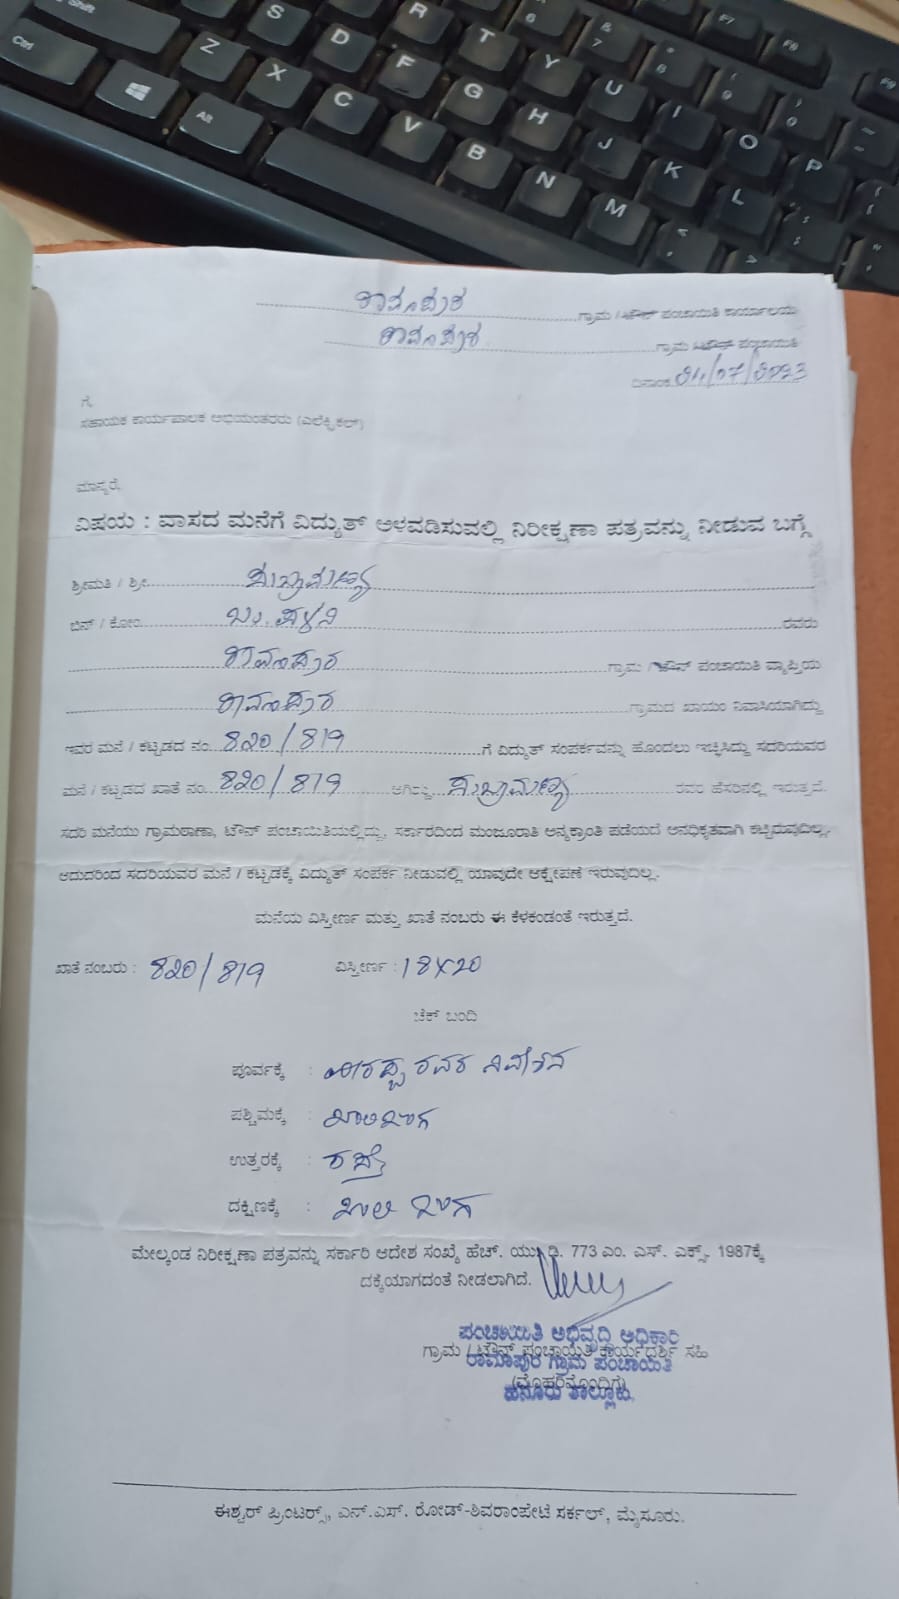 Shift S R T 6 & 7 * 8 ( 9 ) 0 F7 F8 F9
Ctrl Z D F G Y U I O P
X C H J K L
Alt V B N M
ರಾಮಾಪುರ ಗ್ರಾಮ / ಟೌನ್ ಪಂಚಾಯಿತಿ ಕಾರ್ಯಾಲಯ
ರಾಮಾಪುರ ಗ್ರಾಮ ಟೌನ್ ಪಂಚಾಯಿತಿ
ದಿನಾಂಕ 04/07/2023
ಗೆ,
ಸಹಾಯಕ ಕಾರ್ಯಪಾಲಕ ಅಭಿಯಂತರರು (ಎಲೆಕ್ಟ್ರಿಕಲ್)
ಮಾನ್ಯರೆ,
ವಿಷಯ : ವಾಸದ ಮನೆಗೆ ವಿದ್ಯುತ್ ಅಳವಡಿಸುವಲ್ಲಿ ನಿರೀಕ್ಷಣಾ ಪತ್ರವನ್ನು ನೀಡುವ ಬಗ್ಗೆ
ಶ್ರೀಮತಿ / ಶ್ರೀ ಸುಬ್ರಾಮಣ್ಯ
ಬಿನ್ / ಕೋಂ ರವರು
ರಾಮಾಪುರ ಗ್ರಾಮ / ಟೌನ್ ಪಂಚಾಯಿತಿ ವ್ಯಾಪ್ತಿಯ
ರಾಮಾಪುರ ಗ್ರಾಮದ ಖಾಯಂ ನಿವಾಸಿಯಾಗಿದ್ದು
ಇವರ ಮನೆ / ಕಟ್ಟಡದ ನಂ. 820/819 ಗೆ ವಿದ್ಯುತ್ ಸಂಪರ್ಕವನ್ನು ಹೊಂದಲು ಇಚ್ಛಿಸಿದ್ದು ಸದರಿಯವರ
ಮನೆ / ಕಟ್ಟಡದ ಖಾತೆ ನಂ. 820/819 ಆಗಿದ್ದು ಸುಬ್ರಾಮಣ್ಯ ರವರ ಹೆಸರಿನಲ್ಲಿ ಇರುತ್ತದೆ.
ಸದರಿ ಮನೆಯು ಗ್ರಾಮಠಾಣಾ, ಟೌನ್ ಪಂಚಾಯಿತಿಯಲ್ಲಿದ್ದು, ಸರ್ಕಾರದಿಂದ ಮಂಜೂರಾತಿ ಅನ್ಯಕ್ರಾಂತಿ ಪಡೆಯದೆ ಅನಧಿಕೃತವಾಗಿ ಕಟ್ಟಿರುವುದಿಲ್ಲ.
ಆದುದರಿಂದ ಸದರಿಯವರ ಮನೆ / ಕಟ್ಟಡಕ್ಕೆ ವಿದ್ಯುತ್ ಸಂಪರ್ಕ ನೀಡುವಲ್ಲಿ ಯಾವುದೇ ಆಕ್ಷೇಪಣೆ ಇರುವುದಿಲ್ಲ.
ಮನೆಯ ವಿಸ್ತೀರ್ಣ ಮತ್ತು ಖಾತೆ ನಂಬರು ಈ ಕೆಳಕಂಡಂತೆ ಇರುತ್ತದೆ.
ಖಾತೆ ನಂಬರು : 820/819 ವಿಸ್ತೀರ್ಣ : 18X20
ಚೆಕ್ ಬಂದಿ
ಪೂರ್ವಕ್ಕೆ : ರವರ ನಿವೇಶನ
ಪಶ್ಚಿಮಕ್ಕೆ : ಖಾಲಿಜಾಗ
ಉತ್ತರಕ್ಕೆ : ರಸ್ತೆ
ದಕ್ಷಿಣಕ್ಕೆ : ಖಾಲಿ ಜಾಗ
ಮೇಲ್ಕಂಡ ನಿರೀಕ್ಷಣಾ ಪತ್ರವನ್ನು ಸರ್ಕಾರಿ ಆದೇಶ ಸಂಖ್ಯೆ ಹೆಚ್. ಯು. ಡಿ. 773 ಎಂ. ಎಸ್. ಎಕ್ಸ್. 1987ಕ್ಕೆ
ದಕ್ಕೆಯಾಗದಂತೆ ನೀಡಲಾಗಿದೆ.
ಪಂಚಾಯಿತಿ ಅಭಿವೃದ್ಧಿ ಅಧಿಕಾರಿ
ಗ್ರಾಮ / ಟೌನ್ ಪಂಚಾಯಿತಿ ಕಾರ್ಯದರ್ಶಿ ಸಹಿ
ರಾಮಾಪುರ ಗ್ರಾಮ ಪಂಚಾಯಿತಿ
(ಮೊಹರಿನೊಂದಿಗೆ)
ಹನೂರು ತಾಲ್ಲೂಕು.
ಈಶ್ವರ್ ಪ್ರಿಂಟರ್ಸ್, ಎನ್.ಎಸ್. ರೋಡ್-ಶಿವರಾಂಪೇಟೆ ಸರ್ಕಲ್, ಮೈಸೂರು.